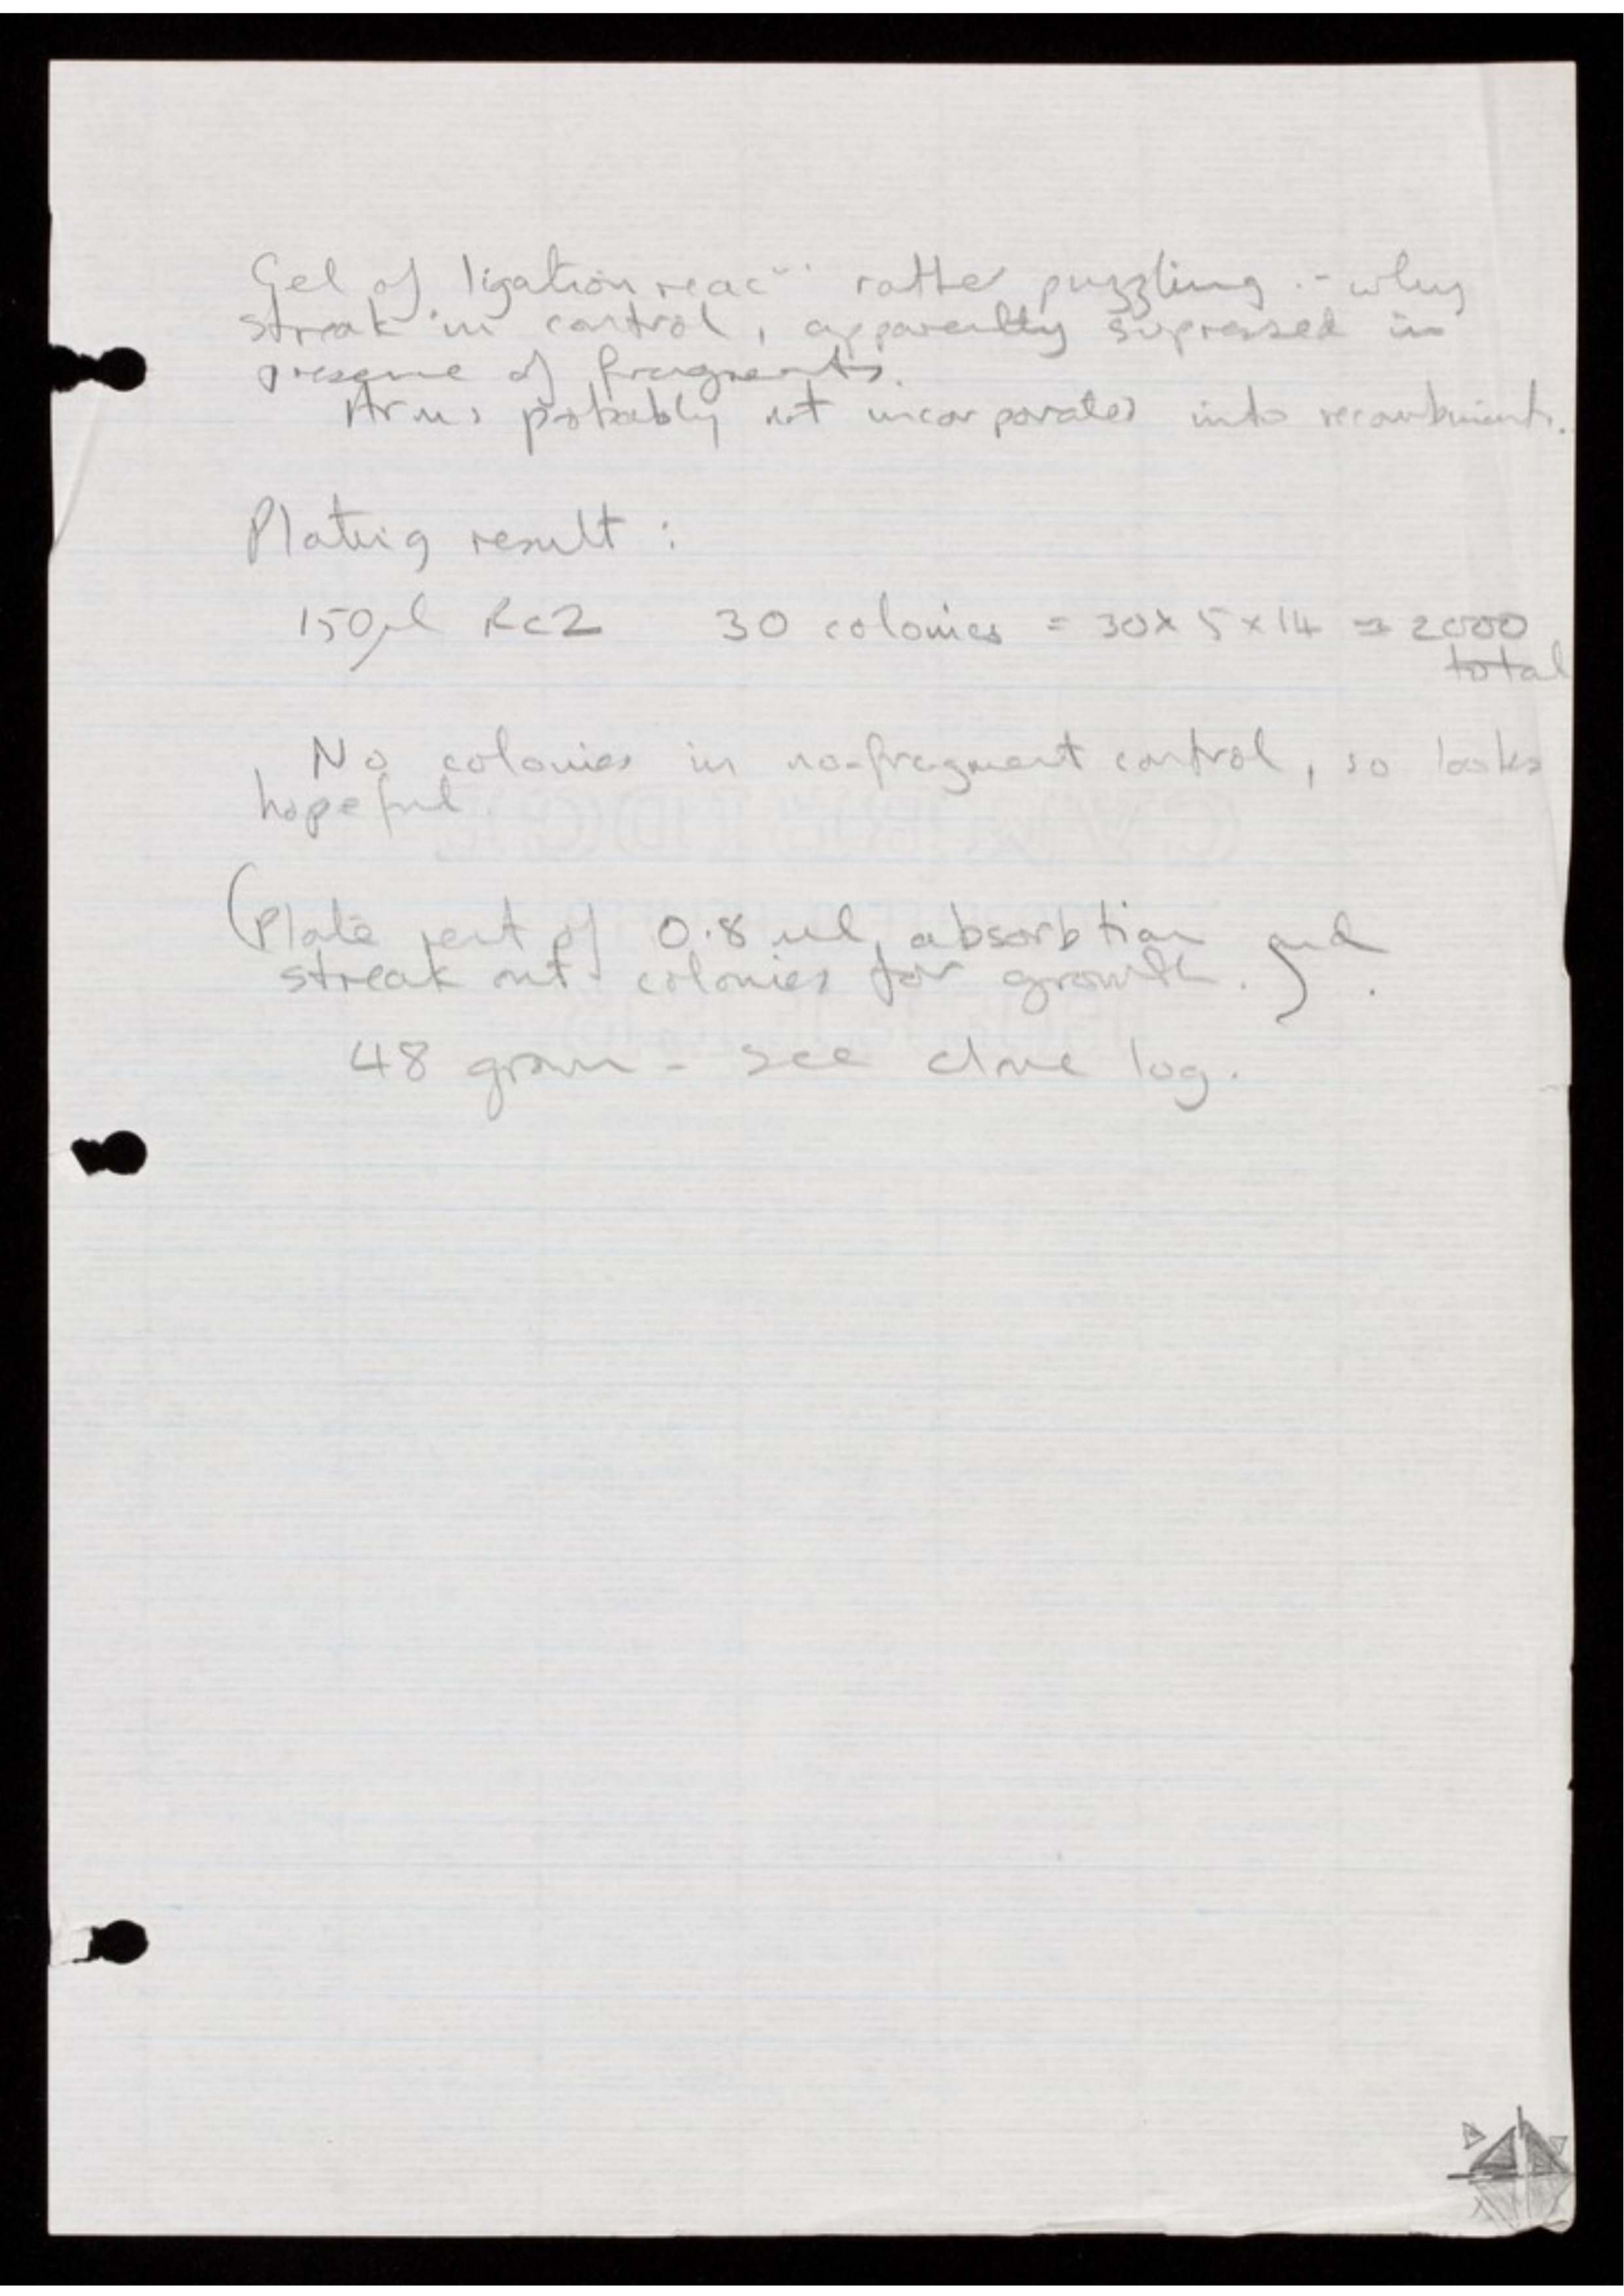 Gel of ligation reacⁿ rather puzzling. - why
streak in control, apparently supressed in
presence of fragments.
Arms probably not incorporated into recombinants.
Plating result :
150μl 30 colonies = 30 x 5 x 14 = 2000
total
No colonies in no-fragment control, so looks
hopeful.
(Plate rest of 0.8 ml absorbtion and
streak out colonies for growth.)
48 grown - see clone log.